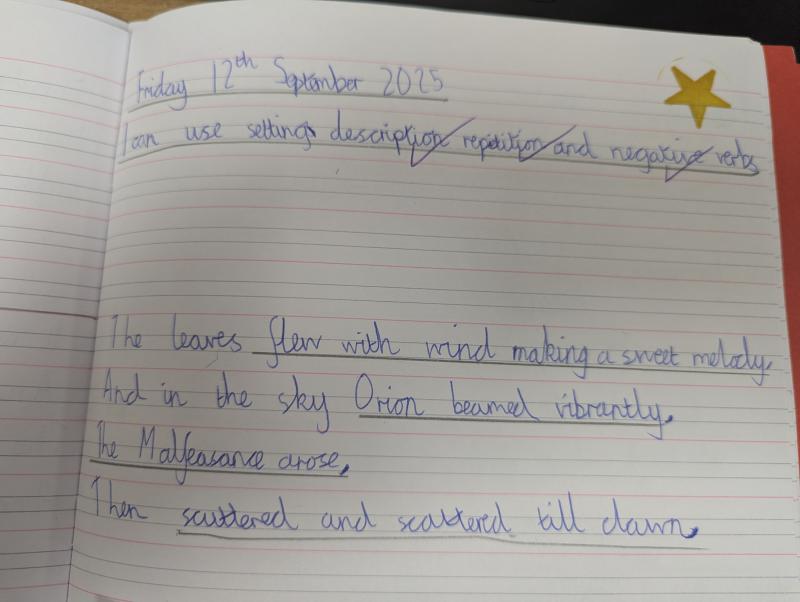 Friday 12th September 2025
I can use settings description repetition and negative verbs
The leaves flew with wind making a sweet melody,
And in the sky Orion beamed vibrantly,
The Malfeasance arose,
Then scuttered and scattered till dawn,